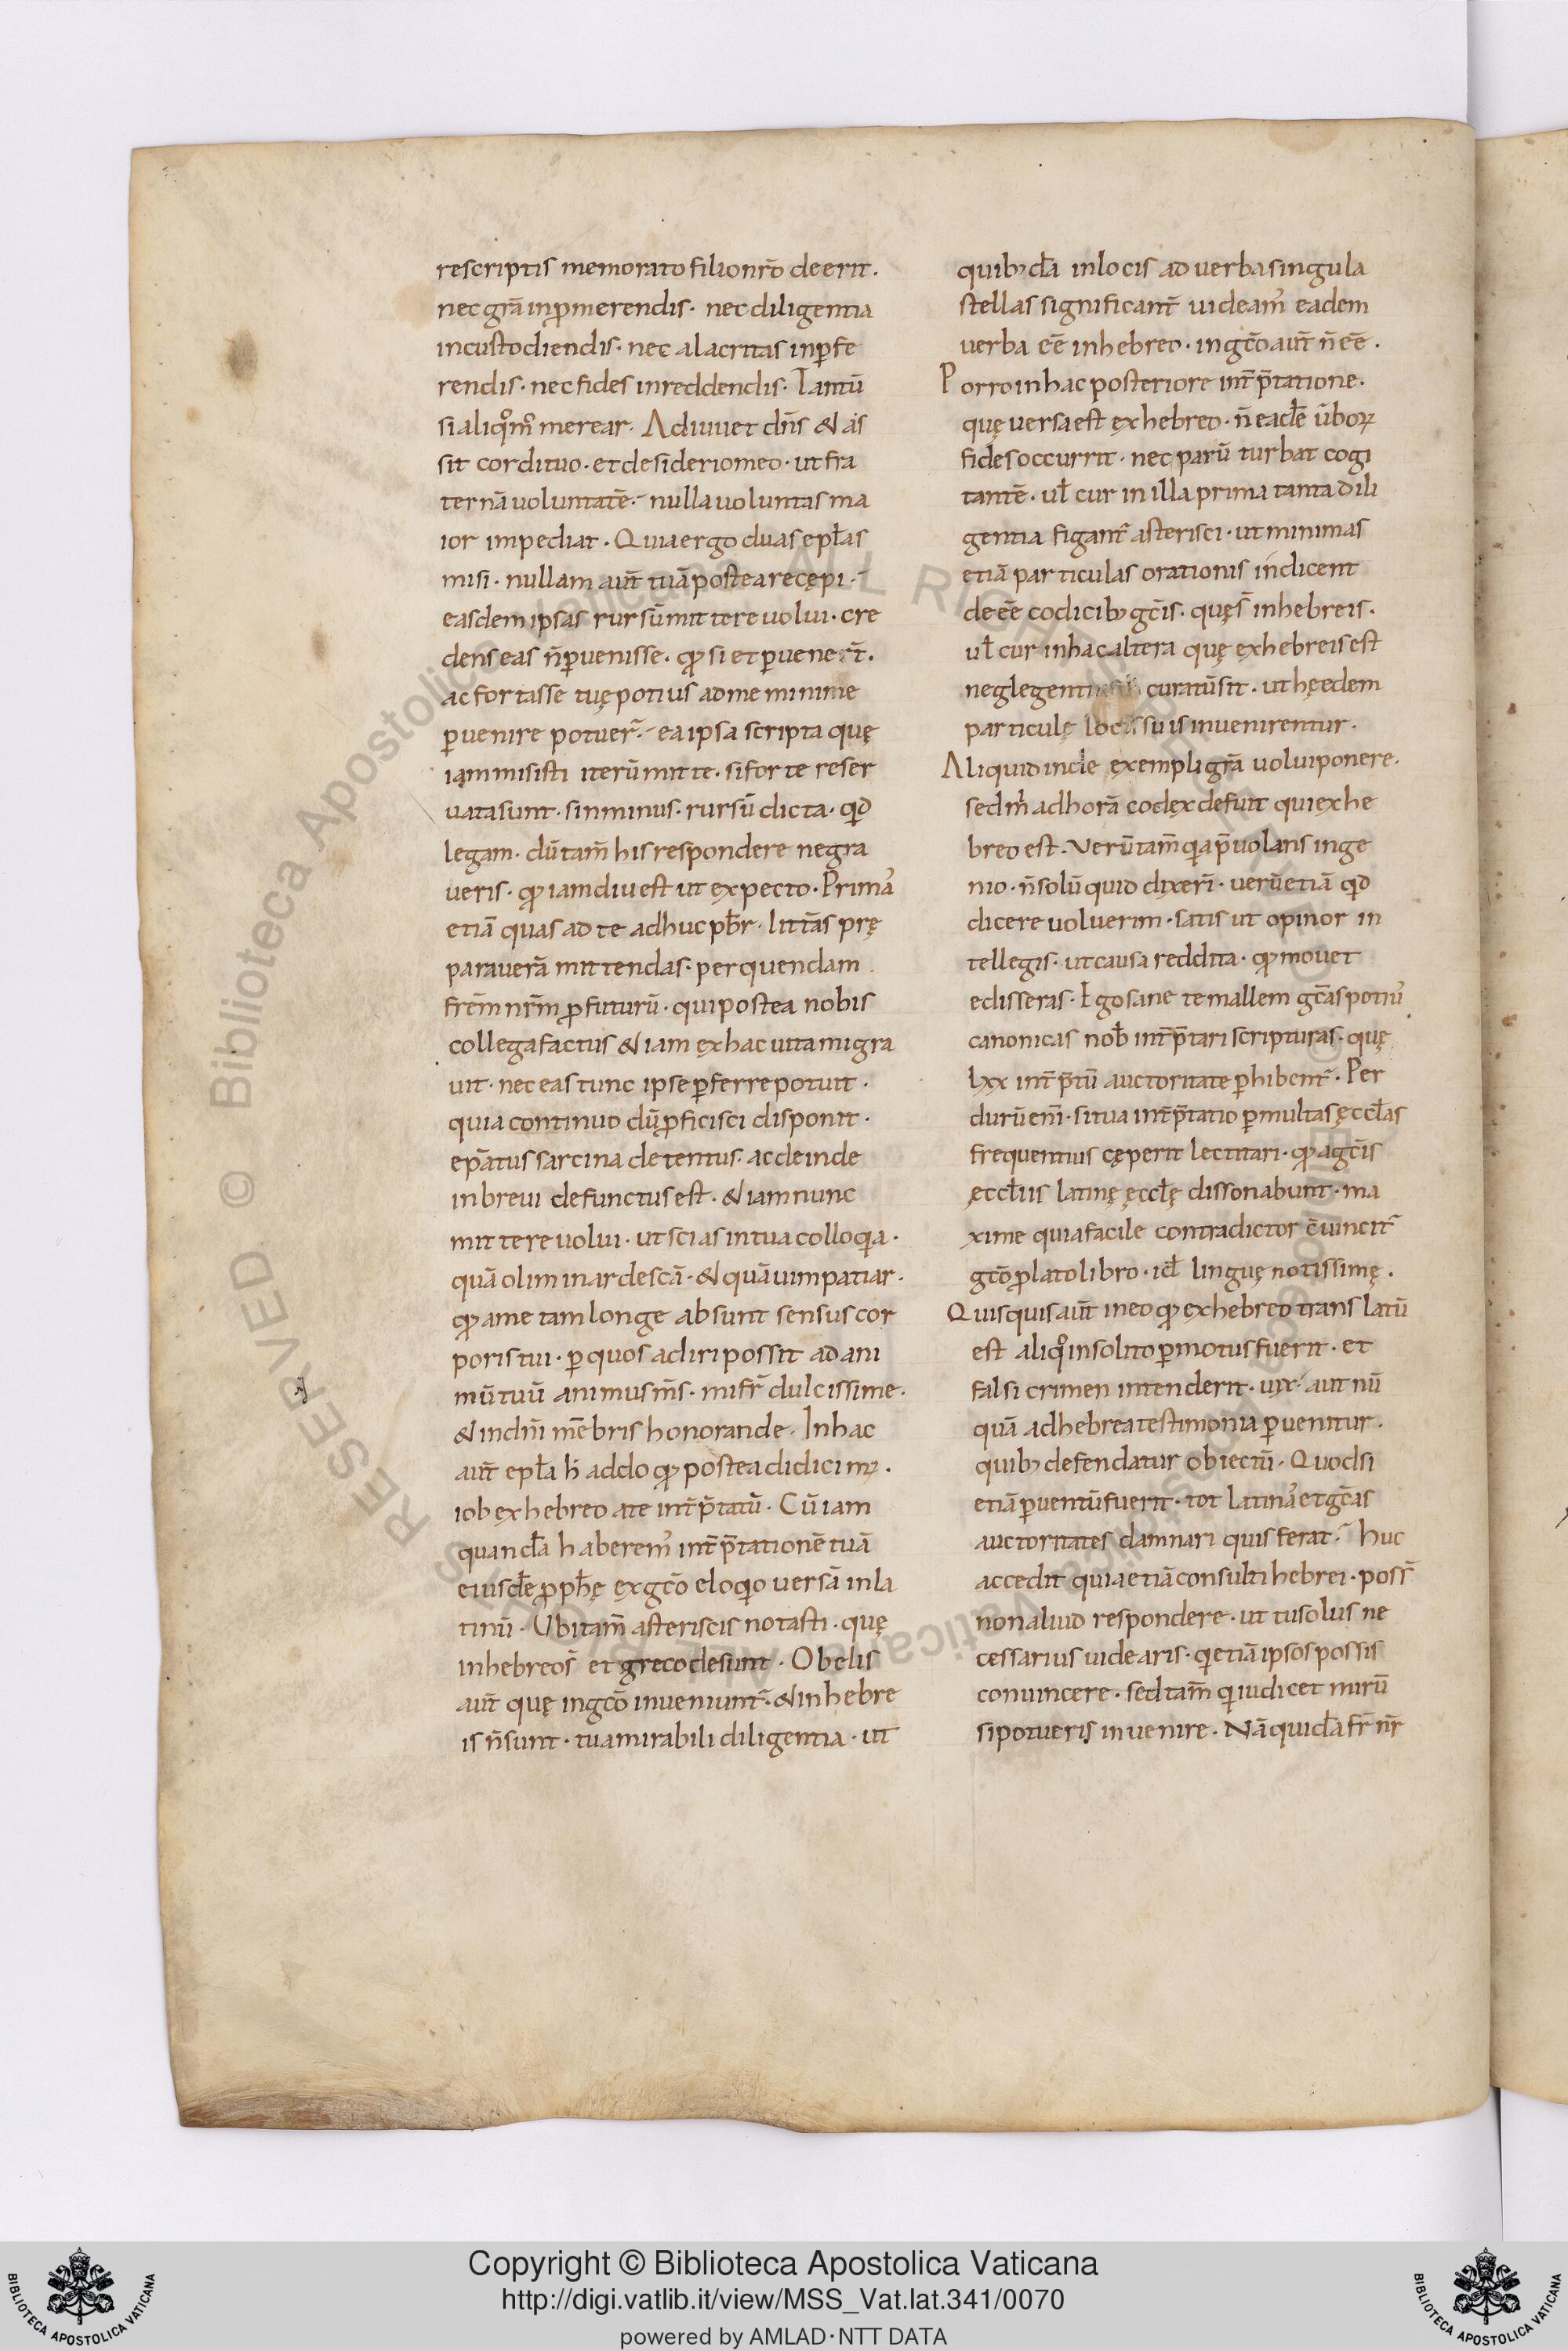 rescriptis memorato filio nr̄o deerit.
nec gr̄a in ꝓmerendis· nec diligentia
in custodiendis· nec alacritas in ꝑfe
rendis· nec fides in reddendis· Tantū
si aliqͦ m̊ merear· Adiuuet dn̄s & as
sit cordi tuo· et desiderio meo· ut fra
ternā uoluntatē· nulla uoluntas ma
ior impediat· Quia ergo duas epłas
misi· nullam aūt tuā postea recępi·
easdem ipsas rursū mittere uolui· cre
dens eas n̄ ꝑuenisse· qđ si et ꝑuenert̄·
ac fortasse tuę potius ad me minime
ꝑuenire potuer̄· ea ipsa scripta quę
iam misisti iterū mitte· si forte reser
uata sunt· sin minus· rursū dicta· qđ
legam· dū tam̄ his respondere ne gra
ueris· qđ iam diu est ut expecto· Primaˢ
etiā quas ad te adhuc pb̄r· litt̄as prę
parauerā mittendas· per quendam
frēm nrm̄ ꝓfuturū· qui postea nobis
collega factus & iam ex hac uita migra
uit· nec eas tunc ipse ꝑferre potuit·
quia continuo dū ꝓficisci disponit·
ep̄atus sarcina detentus· ac deinde
in breui defunctus est· & iam nunc
mittere uolui· ut scias in tua colloqia·
quā olim inardescā· & quā uim patiar·
qđ a me tam longe absunt sensus cor
poris tui· ꝑ quos adiri possit ad ani
mū tuū animus m̄s· mi fr̄ dulcissime·
& in dn̄i mēbris honorande· In hac
aūt epła h̄ addo qđ postea didicimꝰ·
iob ex hebreo a te int̄p̄tatū· Cū iam
quandā haberemꝰ int̄p̄tationē tuā
eiusdē ꝓph̄ę ex gc̄o eloqio uersā in la
tinū· Vbi tam̄ asteriscis notasti· quę
in hebreo s̄ et greco desunt· Obelis
aūt quę in gc̄o inueniunt̄· & in hebre
is n̄ sunt· tua mirabili diligentia· ut
quibꝰdā in locis ad uerba singula
stellas significant̄ uideamꝰ eadem
uerba eē in hebreo· in gc̄o aūt n̄ eē·
Porro in hac posteriore int̄p̄tatione·
quę uersa est ex hebreo· n̄ eadē ūboꝝ
fides occurrit· nec parū turbat cogi
tantē· uł cur in illa prima tanta dili
gentia figant̄ asterisci· ut minimas
etiā particulas orationis indicent
deeē codicibꝰ gc̄is· quę s̄ in hebreis·
uł cur in hac altera quę ex hebreis est
curatū sit· ut hęedem
particulę locis suis inuenirentur·
Aliquid inde exempli gr̄a uolui ponere·
sed m̊ ad horā codex defuit qui ex he
breo est· Verū tam̄ qia p̄uolans inge
nio· n̄ solū quid dixeri̅· uerū etiā qđ
dicere uoluerim· satis ut opinor in
tellegis· ut causa reddita· qđ mouet
edisseras· Ego sane te mallem gc̄as potiuˢ
canonicas nob̄ int̄p̄tari scripturas· quę
lxx int̄p̄tū auctoritate ꝑhibent̄· Per
durū eni̅· si tua int̄p̄tatio ꝑ multas ęccłas
frequentius cęperit lectitari· qđ a gc̄is
ęccłiis latinę ęccłę dissonabunt· ma
xime quia facile contradictor c̄uincit̄
gc̄o ꝓlato libro· id̄ linguę notissimę·
Quisquis aūt in eo qđ ex hebreo translatū
est aliqͦ insolito ꝑmotus fuerit· et
falsi crimen intenderit· uix aut nū
quā ad hebrea testimonia ꝑuenitur·
quibꝰ defendatur obiectū· Quodsi
etiā ꝑuentū fuerit· tot latinaˢ et gc̄as
auctoritates damnari quis ferat? huc
accedit quia etiā consulti hebrei· poss̄
non aliud respondere· ut tu solus ne
cessarius uidearis· qi etiā ipsos possis
conuincere· sed tam̄ qi iudicet mirū
si potueris inuenire· Nā quidā fr̄ nr̄
Copyright © Biblioteca Apostolica Vaticana
http://digi.vatlib.it/view/MSS_Vat.lat.341/0070
powered by AMLAD·NTT DATA
BIBLIOTECA APOSTOLICA VATICANA
BIBLIOTECA APOSTOLICA VATICANA